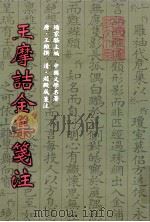 楊家駱主編　中國文學名著
唐・王維撰　清・趙殿成箋注
王摩詰全集箋注